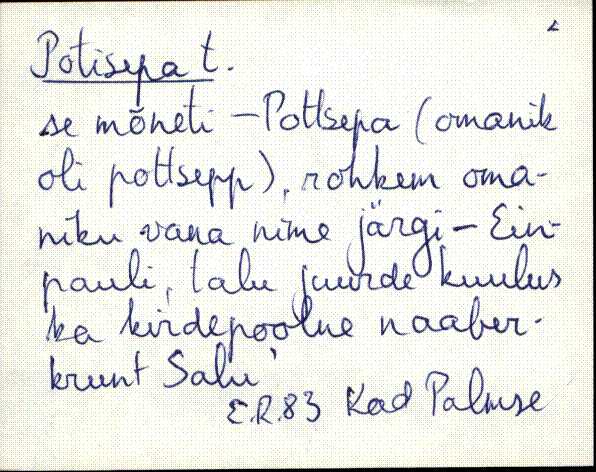 Potisepa t.
se mõneti – Pottsepa (omanik
oli pottsepp), rohkem oma-
niku vana nime järgi – Ein-
pauli, talu juurde kuulus
ka kirdepoolne naaber-
krunt Salu
E.R.83 Kad Palmse